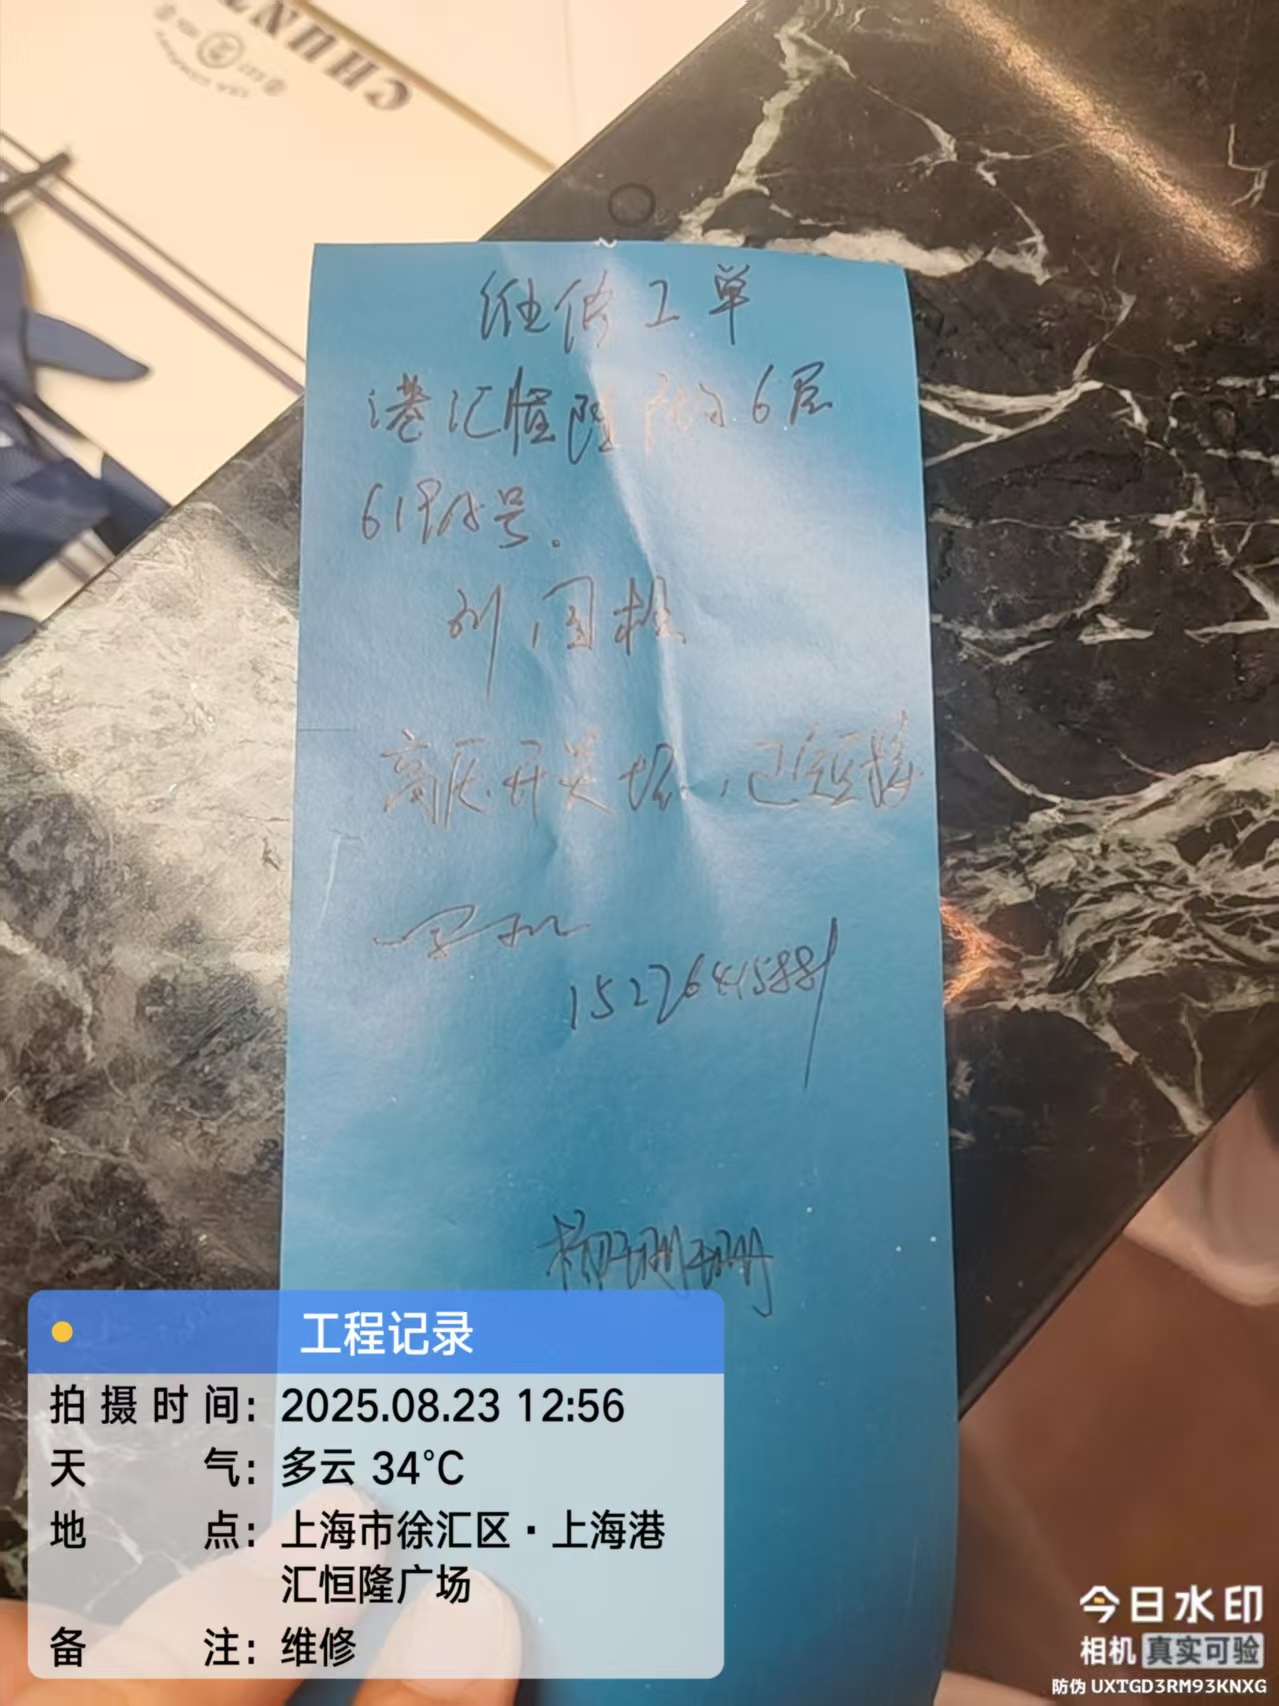 CHHN
维修工单
港汇恒隆 6层
号。
刘国栋
高压开关坏,已短接
柳珊珊
工程记录
拍摄时间: 2025.08.23 12:56
天气: 多云 34℃
地点: 上海市徐汇区·上海港
汇恒隆广场
备注: 维修
今日水印
相机 真实可验
防伪 UXTGD3RM93KNXG